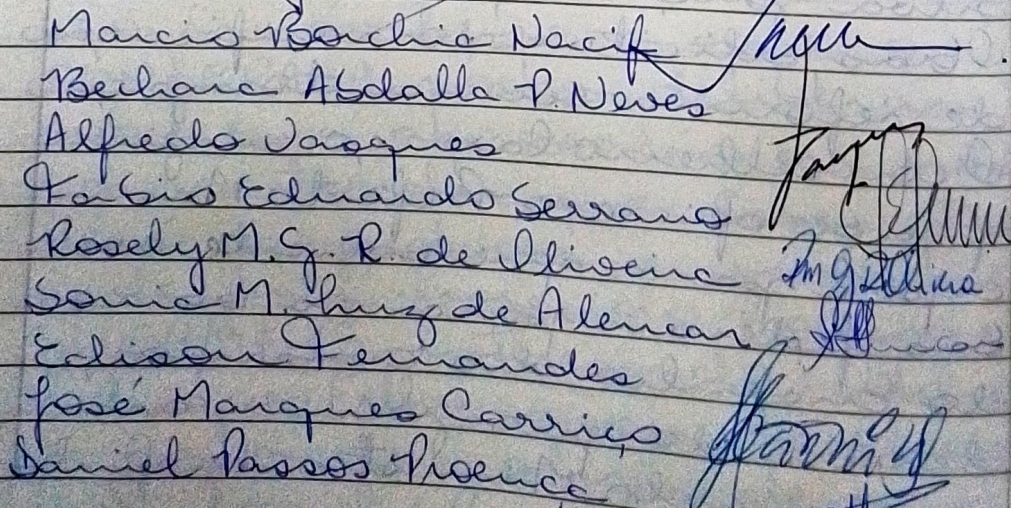 Marcio Borchia Nacif
Bechara Abdalla P. Neves
Alfredo Vasques
Fabio Eduardo Serrano
Rosely M. G. R. de Oliveira
Sonia M. Luz de Alencar
Edison Fernandes
José Marques Carriço
Daniel Passos Proença